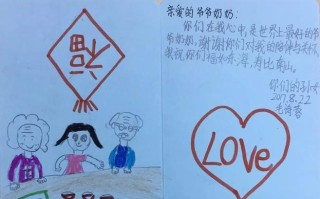 福
亲爱的爷爷奶奶:
你们在我心中,是世界上最好的爷
爷奶奶,谢谢你们对我的陪伴与关怀,
祝你们福如东海,寿比南山。
你们的孙女
2017.8.22
LOVe